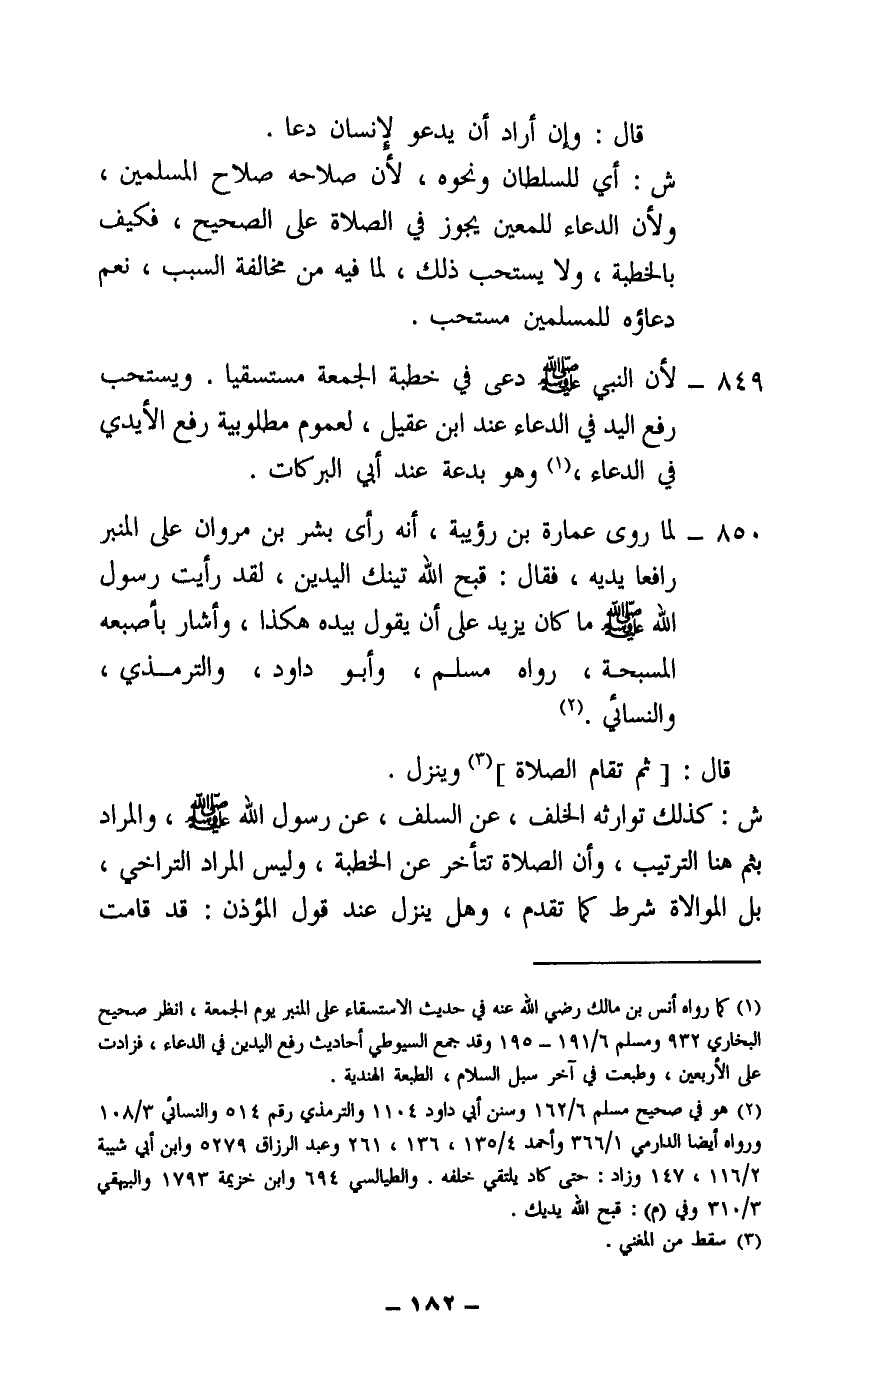 قال : وإن أراد أن يدعو لإنسان دعا .
ش : أي للسلطان ونحوه ، لأن صلاحه صلاح المسلمين ،
ولأن الدعاء للمعين يجوز في الصلاة على الصحيح ، فكيف
بالخطبة ، ولا يستحب ذلك ، لما فيه من مخالفة السبب ، نعم
دعاؤه للمسلمين مستحب .
٨٤٩ – لأن النبي ﷺ دعى في خطبة الجمعة مستسقيا . ويستحب
رفع اليد في الدعاء عند ابن عقيل ، لعموم مطلوبية رفع الأيدي
في الدعاء ،(١) وهو بدعة عند أبي البركات .
٨٥٠ – لما روى عمارة بن رؤيبة ، أنه رأى بشر بن مروان على المنبر
رافعا يديه ، فقال : قبح الله تينك اليدين ، لقد رأيت رسول
الله ﷺ ما كان يزيد على أن يقول بيده هكذا ، وأشار بأصبعه
المسبحة ، رواه مسلم ، وأبو داود ، والترمذي ،
والنسائي .(٢)
قال : [ ثم تقام الصلاة ](٣) وينزل .
ش : كذلك توارثه الخلف ، عن السلف ، عن رسول الله ﷺ ، والمراد
بثم هنا الترتيب ، وأن الصلاة تتأخر عن الخطبة ، وليس المراد التراخي ،
بل الموالاة شرط كما تقدم ، وهل ينزل عند قول المؤذن : قد قامت
(١) كما رواه أنس بن مالك رضي الله عنه في حديث الاستسقاء على المنبر يوم الجمعة ، انظر صحيح
البخاري ٩٣٢ ومسلم ١٩١/٦ – ١٩٥ وقد جمع السيوطي أحاديث رفع اليدين في الدعاء ، فزادت
على الأربعين ، وطبعت في آخر سبل السلام ، الطبعة الهندية .
(٢) هو في صحيح مسلم ١٦٢/٦ وسنن أبي داود ١١٠٤ والترمذي رقم ٥١٤ والنسائي ١٠٨/٣
ورواه أيضا الدارمي ٣٦٦/١ وأحمد ١٣٥/٤ ، ١٣٦ ، ٢٦١ وعبد الرزاق ٥٢٧٩ وابن أبي شيبة
١١٦/٢ ، ١٤٧ وزاد : حتى كاد يلتقي خلفه . والطيالسي ٦٩٤ وابن خزيمة ١٧٩٣ والبيهقي
٣١٠/٣ وفي (م) : قبح الله يديك .
(٣) سقط من المغني .
– ١٨٢ –